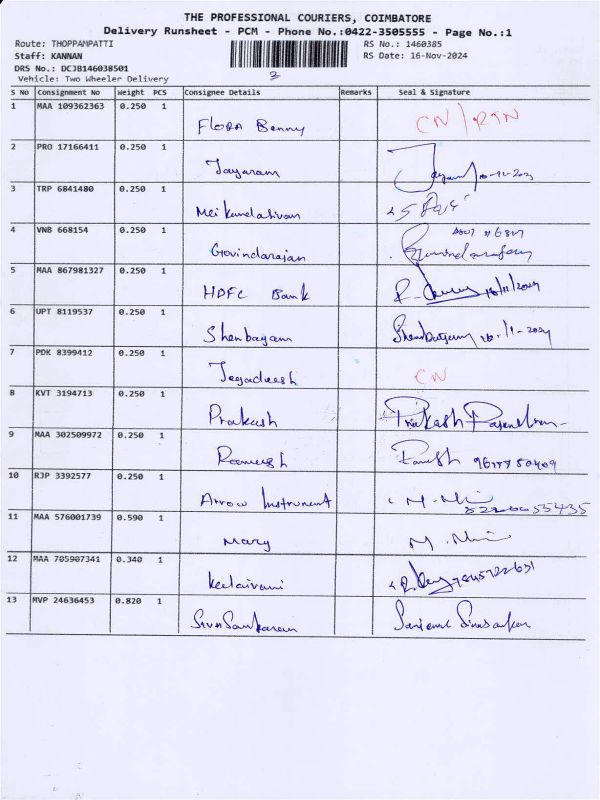 THE PROFESSIONAL COURIERS, COIMBATORE
Delivery Runsheet - PCM - Phone No.:0422-3505555 - Page No.:1
Route: THOPPAMPATTI RS No.: 1460385
Staff: KANNAN RS Date: 16-Nov-2024
DRS No.: DCJB146038501
Vehicle: Two Wheeler Delivery
S No Consignment No Weight PCS Consignee Details Remarks Seal & Signature
1 MAA 109362363 0.250 1
Flora Benny CN/RTN
2 PRO 17166411 0.250 1
Jayaram
3 TRP 6841480 0.250 1
Meikandasivan
4 VNB 668154 0.250 1
Govindarajan
5 MAA 867981327 0.250 1
HDFC Bank 16/11/2024
6 UPT 8119537 0.250 1
Shenbagam
7 PDK 8399412 0.250 1
Jegadeesh CN
8 KVT 3194713 0.250 1
Prakash Prakash
9 MAA 302509972 0.250 1
Rameesh
10 RJP 3392577 0.250 1
Arrow Instrument
11 MAA 576001739 0.590 1
Mary
12 MAA 705907341 0.340 1
13 MVP 24636453 0.820 1
SivaSankaran